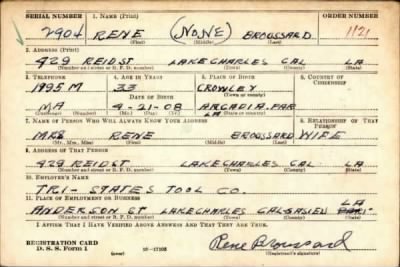 SERIAL NUMBER 1. NAME (Print) ORDER NUMBER
2904 RENE (NONE) BROUSSARD 1121
(First) (Middle) (Last)
2. ADDRESS (Print)
429 REID ST LAKE CHARLES CAL LA
(Number and street or R. F. D. number) (Town) (County) (State)
3. TELEPHONE 4. AGE IN YEARS 5. PLACE OF BIRTH 6. COUNTRY OF CITIZENSHIP
1995M 33 CROWLEY
DATE OF BIRTH (Town or county)
MA 4-21-08 ARCADIA. PAR LA
7. NAME OF PERSON WHO WILL ALWAYS KNOW YOUR ADDRESS 8. RELATIONSHIP OF THAT PERSON
MRS RENE BROUSSARD WIFE
(Mr., Mrs., Miss) (First) (Middle) (Last)
9. ADDRESS OF THAT PERSON
429 REID ST LAKE CHARLES CAL LA
(Number and street or R. F. D. number) (Town) (County) (State)
10. EMPLOYER'S NAME
TRI-STATES TOOL CO.
11. PLACE OF EMPLOYMENT OR BUSINESS LA
ANDERSON ST LAKE CHARLES CALCASIEU
(Number and street or R. F. D. number) (Town) (County) (State)
I AFFIRM THAT I HAVE VERIFIED ABOVE ANSWERS AND THAT THEY ARE TRUE.
Rene Broussard
REGISTRATION CARD
D. S. S. Form 1 (over) (Registrant's signature)